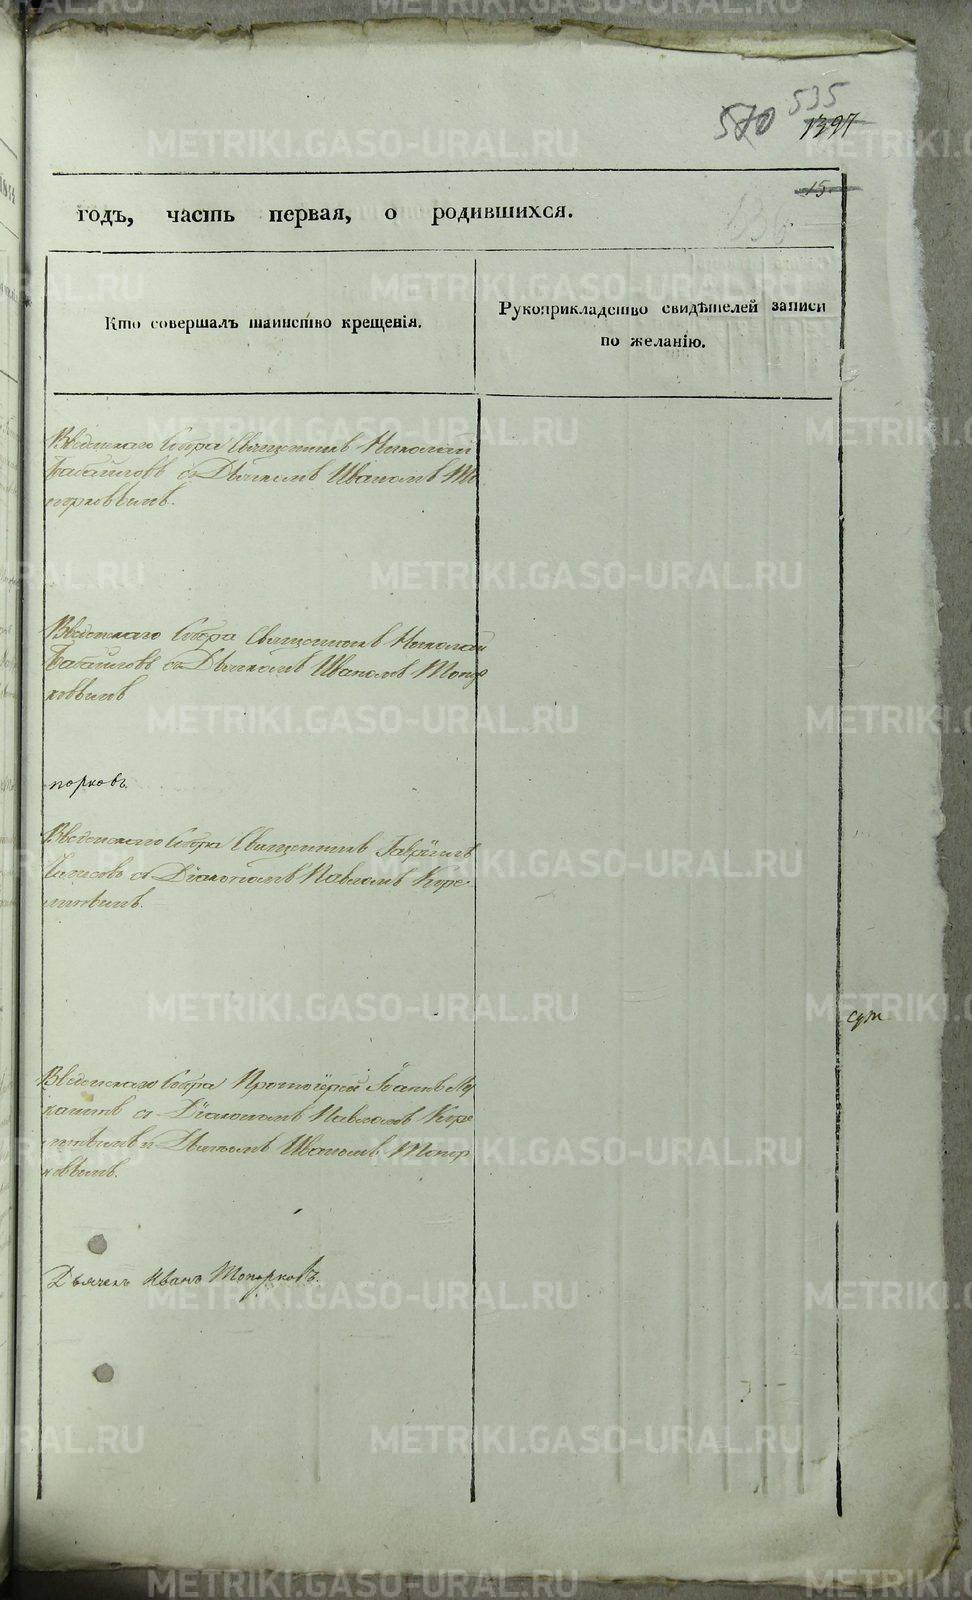 535
570 1397
15.
годъ, часть первая, о родившихся.
Кто совершалъ таинство крещенія.
Рукоприкладство свидѣтелей записи
по желанію.
Введенскаго Собора Священникъ Николай
съ Дьячкомъ Иваномъ То
порковымъ.
Введенскаго Собора Священникъ Николай
съ Дьячкомъ Иваномъ Топор
ковымъ
порковъ
Введенскаго Собора Священникъ Гавріилъ
съ Діакономъ Павломъ
Введенскаго Собора Протоіерей Іоаннъ
съ Діакономъ Павломъ
и Дьячкомъ Иваномъ Топор
ковымъ.
Дьячекъ Иванъ Топорковъ.
METRIKI.GASO-URAL.RU